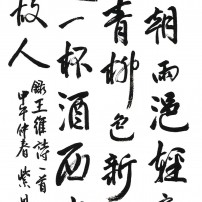 朝雨浥輕
青柳色新
一杯酒西
故人
錄王維詩一首
甲午仲春紫